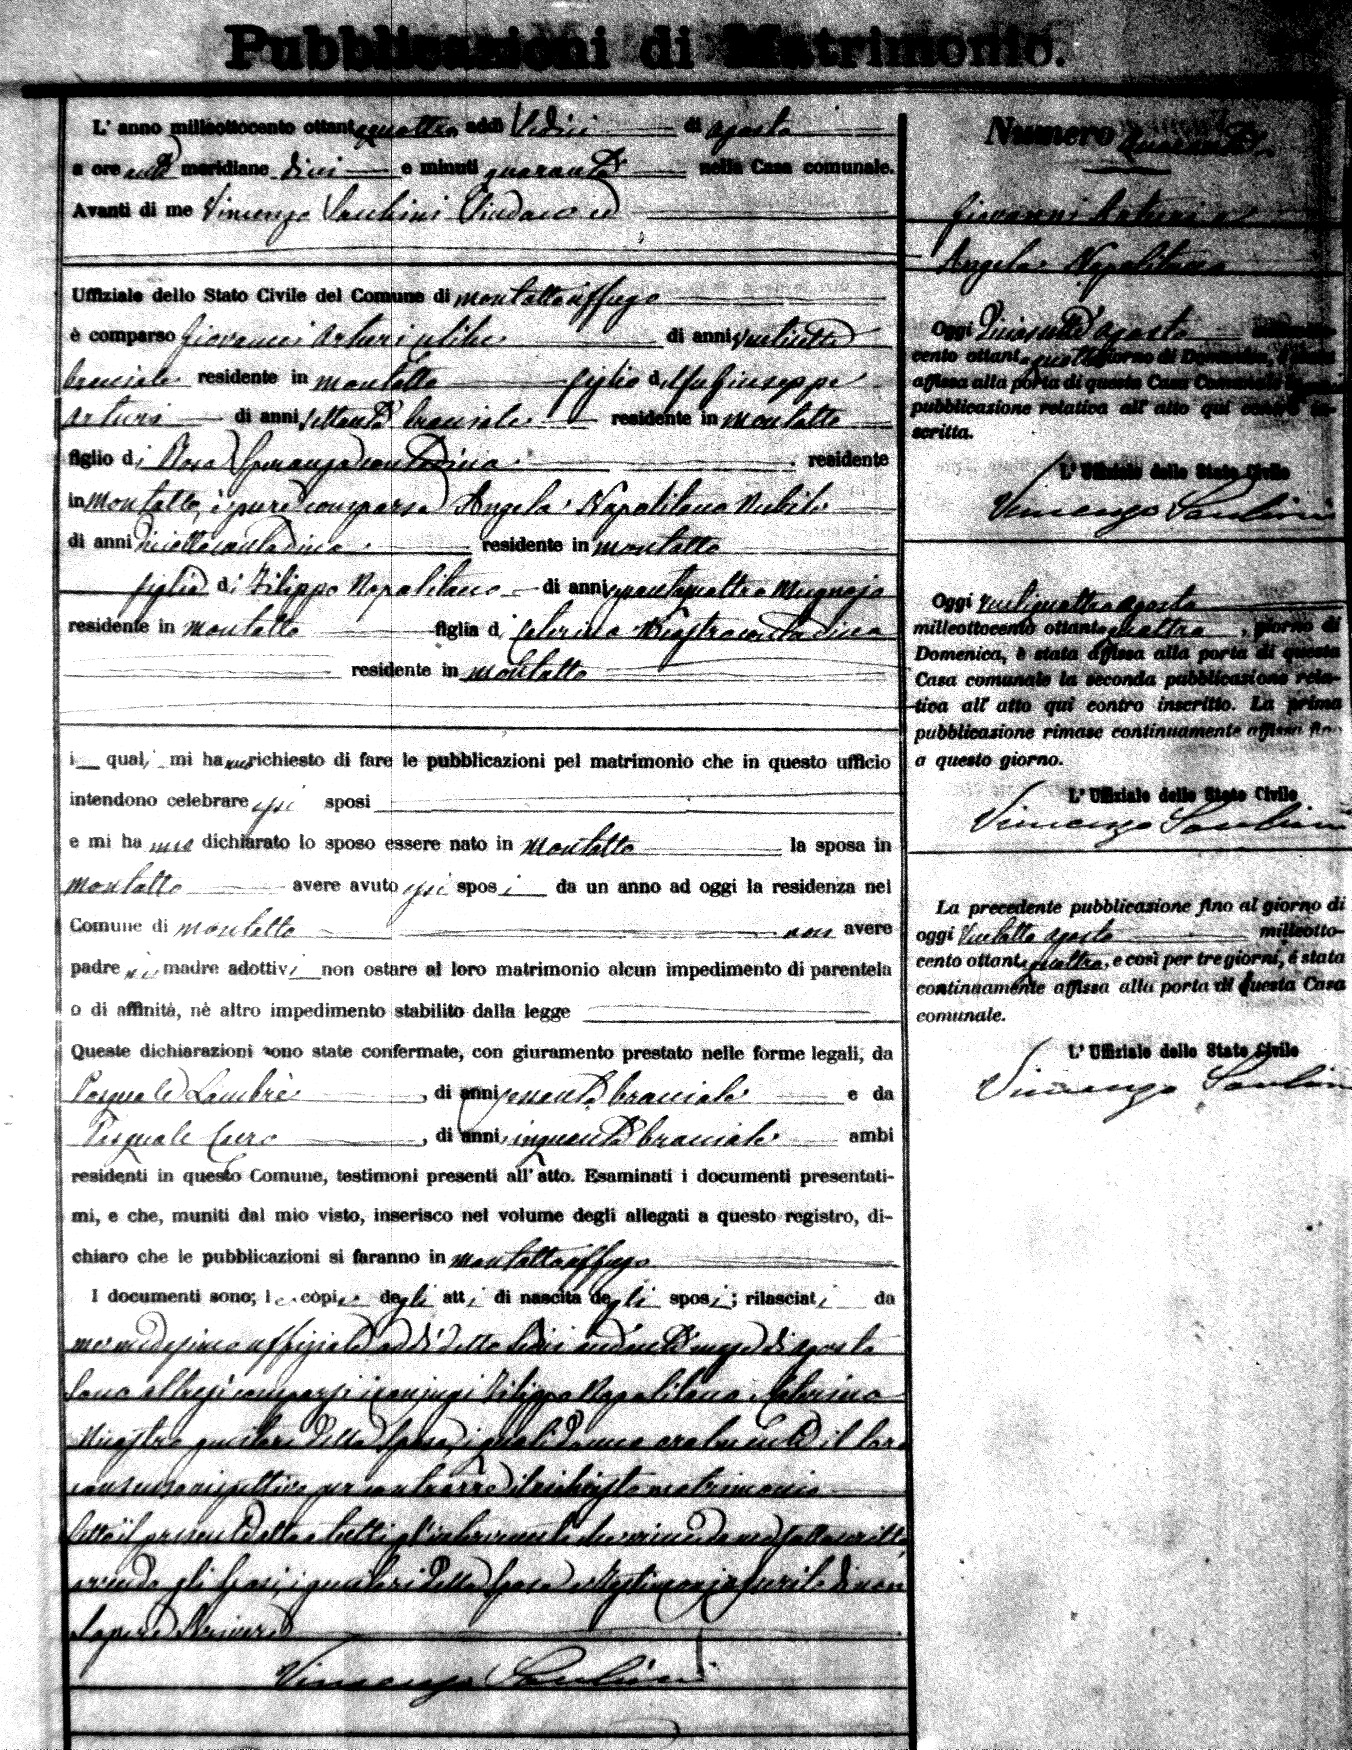 Pubblicazioni di Matrimonio.
L' anno milleottocento ottantaquattro addì Sedici di agosto
a ore anti meridiane dieci e minuti quaranta nella Casa comunale.
Avanti di me Vincenzo Sindaco ed
Uffiziale dello Stato Civile del Comune di montalto uffugo
è comparso Giovanni Arturi celibe di anni ventisette
bracciale residente in montalto figlio di Giuseppe
Arturi di anni settanta bracciale residente in montalto
figlio di Rosa Speranza contadina residente
in montalto, è pure comparsa Angela Napolitano Nubile
di anni contadina residente in montalto
figlia di Filippo Napolitano di anni quarantaquattro Mugnajo
residente in montalto figlia di Caterina contadina
residente in montalto
i quali mi hanno richiesto di fare le pubblicazioni pel matrimonio che in questo ufficio
intendono celebrare essi sposi
e mi hanno dichiarato lo sposo essere nato in montalto la sposa in
montalto avere avuto essi sposi da un anno ad oggi la residenza nel
Comune di montalto non avere
padre nè madre adottivi non ostare al loro matrimonio alcun impedimento di parentela
o di affinità, nè altro impedimento stabilito dalla legge
Queste dichiarazioni sono state confermate, con giuramento prestato nelle forme legali, da
Pasquale Lambrè, di anni quaranta bracciale e da
Pasquale, di anni cinquanta bracciale ambi
residenti in questo Comune, testimoni presenti all' atto. Esaminati i documenti presentati-
mi, e che, muniti dal mio visto, inserisco nel volume degli allegati a questo registro, di-
chiaro che le pubblicazioni si faranno in montalto uffugo
I documenti sono; le copie degli atti di nascita degli sposi; rilasciati da
me medesimo uffiziale addì detto Sedici andante mese di agosto
Sono altresì comparsi i conjugi Filippo Napolitano, Caterina
genitori della Sposa, i quali danno oralmente il loro
consenso rispettivo per contrarre il richiesto matrimonio
Letto il presente atto a tutti gl'intervenuti
avendo gli Sposi, i genitori della Sposa e testimonj asserito di non
Sapere Scrivere
Vincenzo
Numero quaranta
Giovanni Arturi e
Angela Napolitano
Oggi Diciassette agosto milleotto-
cento ottantaquattro giorno di Domenica, è stata
affissa alla porta di questa Casa Comunale
pubblicazione relativa all' atto qui contro in-
scritta.
L' Uffiziale dello Stato Civile
Vincenzo
Oggi ventiquattro agosto
milleottocento ottantaquattro, giorno di
Domenica, è stata affissa alla porta di questa
Casa comunale la seconda pubblicazione rela-
tiva all' atto qui contro inscritto. La prima
pubblicazione rimase continuamente affissa fino
a questo giorno.
L' Uffiziale dello Stato Civile
Vincenzo
La precedente pubblicazione fino al giorno di
oggi Ventotto agosto milleotto-
cento ottantaquattro, e così per tre giorni, è stata
continuamente affissa alla porta di questa Casa
comunale.
L' Uffiziale dello Stato Civile
Vincenzo